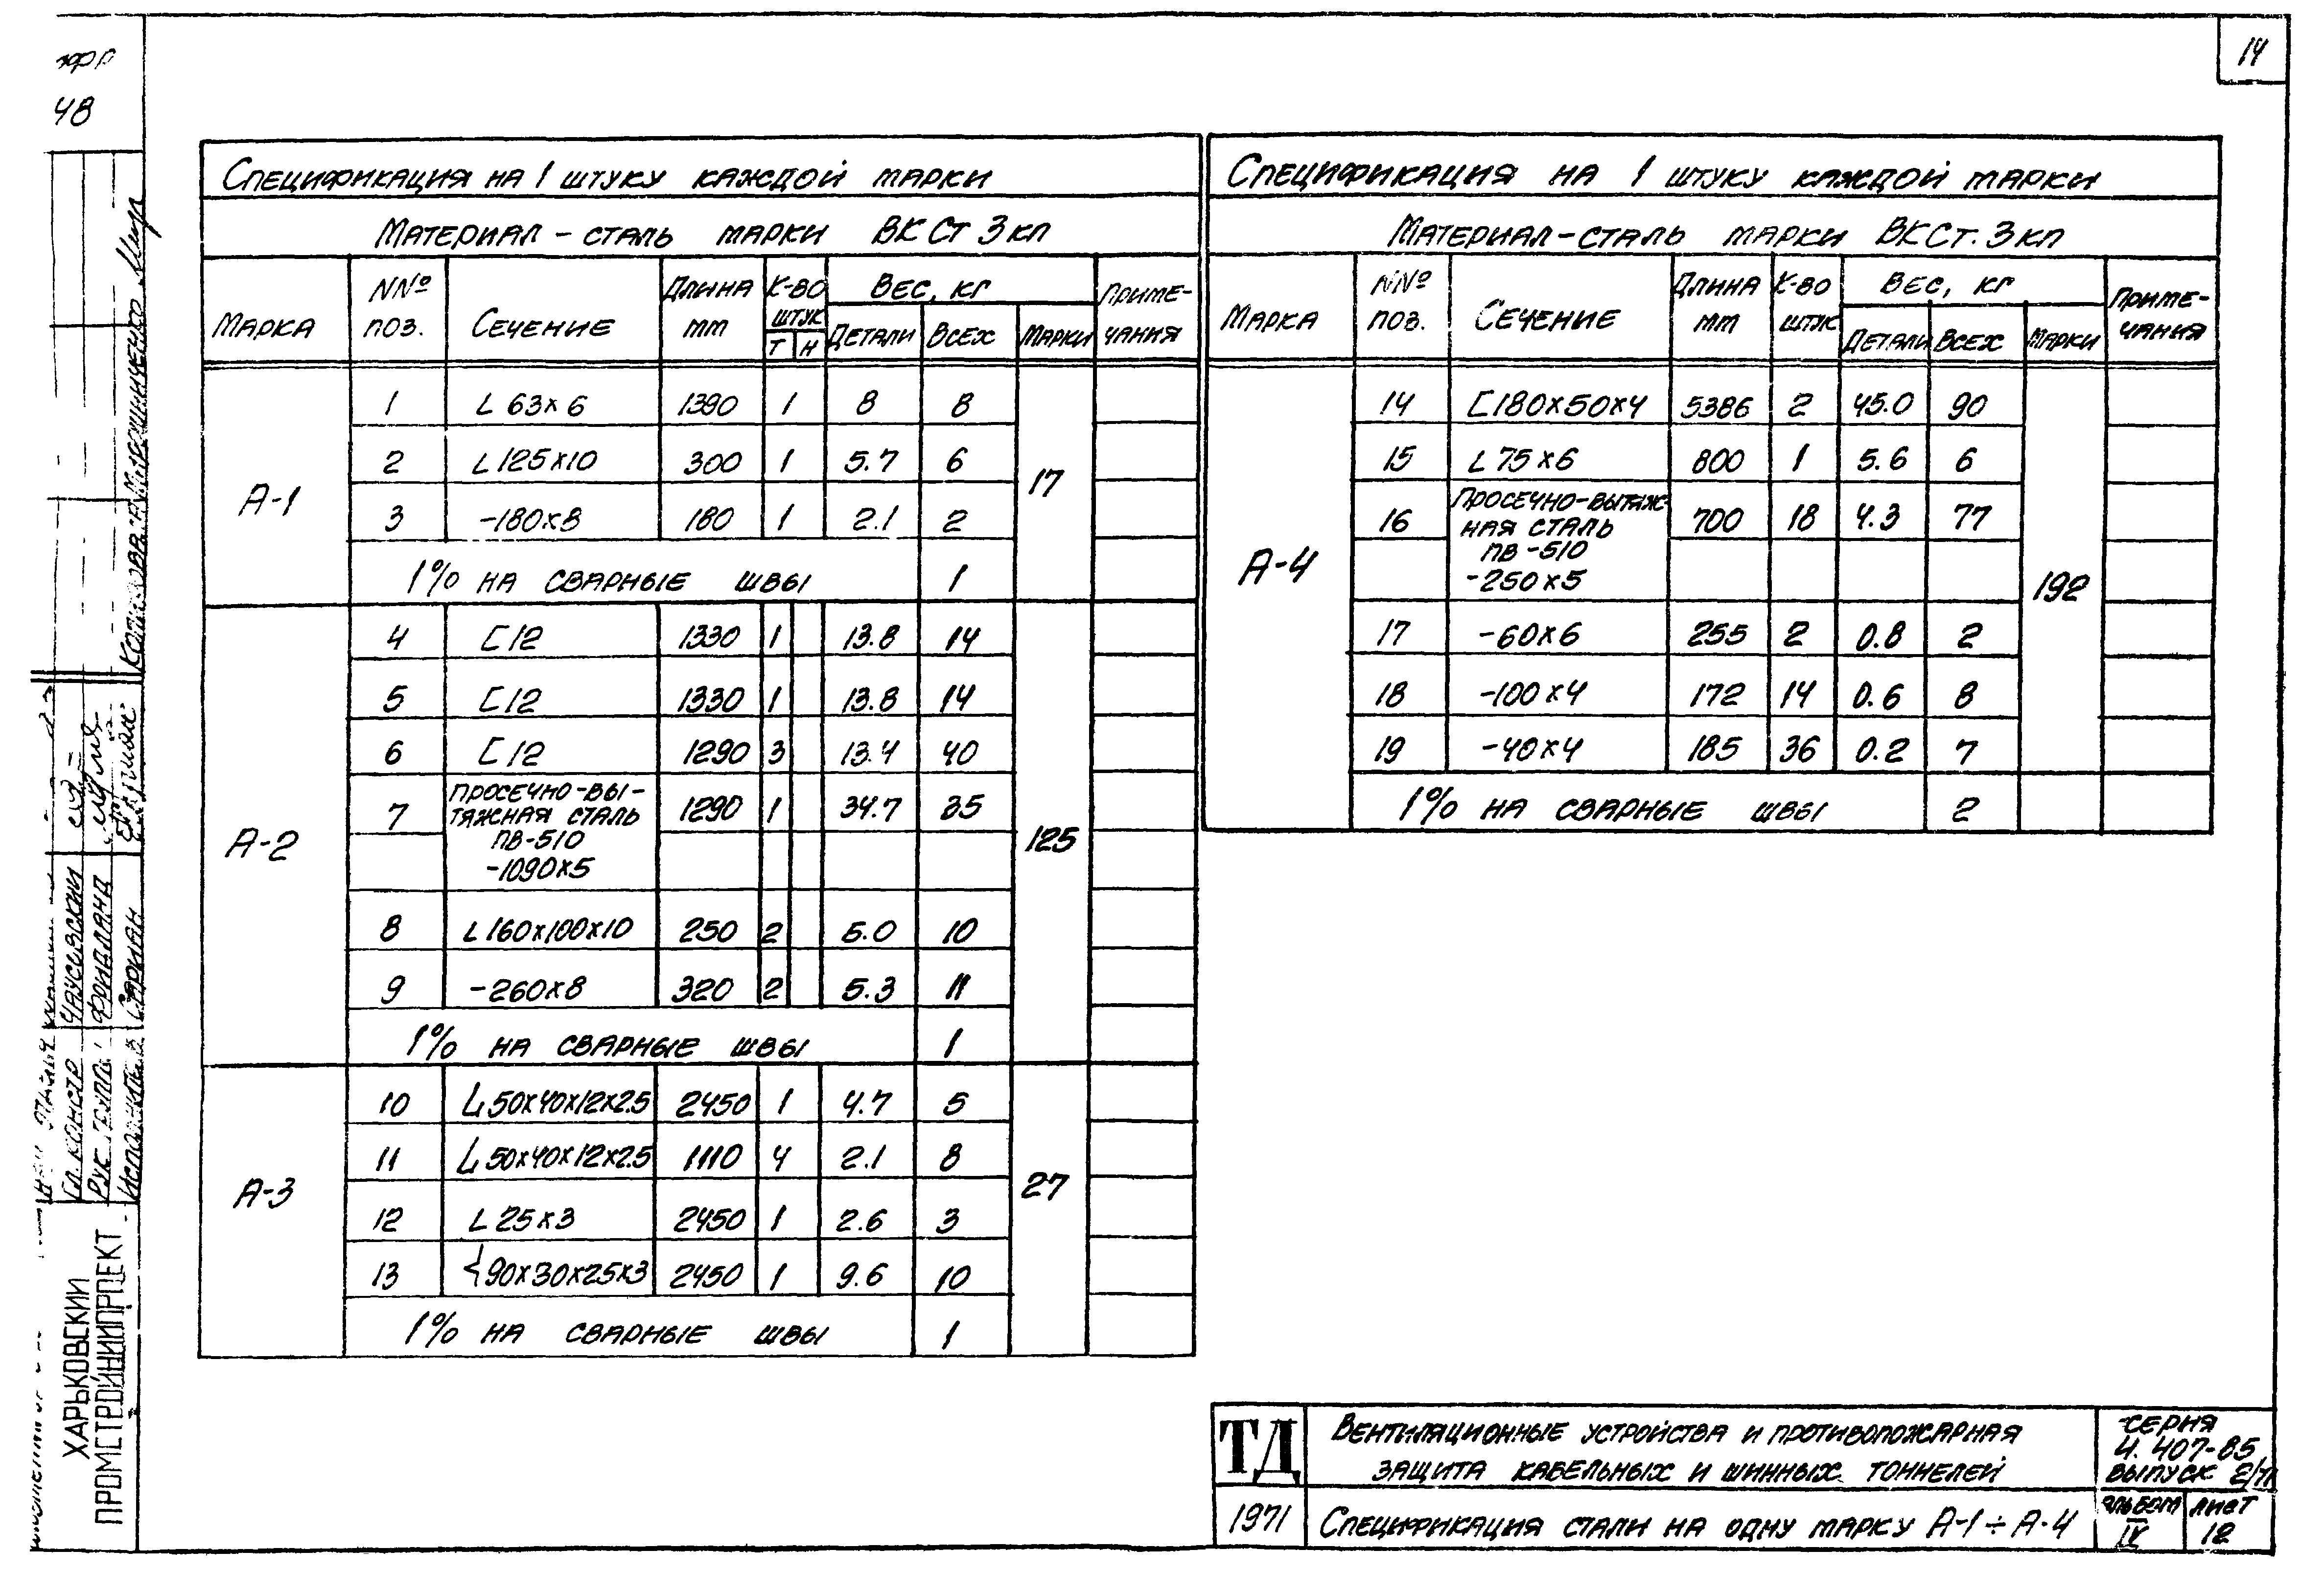 14
48
Спецификация на 1 штуку каждой марки
Материал - сталь марки ВКСт 3кп
Марка | NNº поз. | Сечение | Длина мм | К-во штук Т Н | Вес, кг Детали Всех Марки | Примечания
А-1 | 17
1 | L 63×6 | 1390 | 1 | 8 | 8
2 | L 125×10 | 300 | 1 | 5.7 | 6
3 | -180×8 | 180 | 1 | 2.1 | 2
1% на сварные швы | 1
А-2 | 125
4 | [12 | 1330 | 1 | 13.8 | 14
5 | [12 | 1330 | 1 | 13.8 | 14
6 | [12 | 1290 | 3 | 13.4 | 40
7 | Просечно-вы-
тяжная сталь | 1290 | 1 | 34.7 | 35
ПВ-510
-1090×5
8 | L 160×100×10 | 250 | 2 | 5.0 | 10
9 | -260×8 | 320 | 2 | 5.3 | 11
1% на сварные швы | 1
А-3 | 27
10 | 50×40×12×2.5 | 2450 | 1 | 4.7 | 5
11 | 50×40×12×2.5 | 1110 | 4 | 2.1 | 8
12 | L 25×3 | 2450 | 1 | 2.6 | 3
13 | 90×30×25×3 | 2450 | 1 | 9.6 | 10
1% на сварные швы | 1
Спецификация на 1 штуку каждой марки
Материал-сталь марки ВКСт.3кп
Марка | NNº поз. | Сечение | Длина мм | К-во штук | Вес, кг Детали Всех Марки | Примечания
А-4 | 192
14 | [180×50×4 | 5386 | 2 | 45.0 | 90
15 | L 75×6 | 800 | 1 | 5.6 | 6
Просечно-вытяж-
16 | ная сталь | 700 | 18 | 4.3 | 77
ПВ-510
-250×5
17 | -60×6 | 255 | 2 | 0.8 | 2
18 | -100×4 | 172 | 14 | 0.6 | 8
19 | -40×4 | 185 | 36 | 0.2 | 7
1% на сварные швы | 2
ТД
Вентиляционные устройства и противопожарная
защита кабельных и шинных тоннелей
Серия
4.407-85
выпуск 2/71
1971
Спецификация стали на одну марку А-1÷А-4
альбом IX
лист 12
Харьковский
Промстройниипроект
Гл. констр
Рук. группы
Фридлянд
Исполнитель